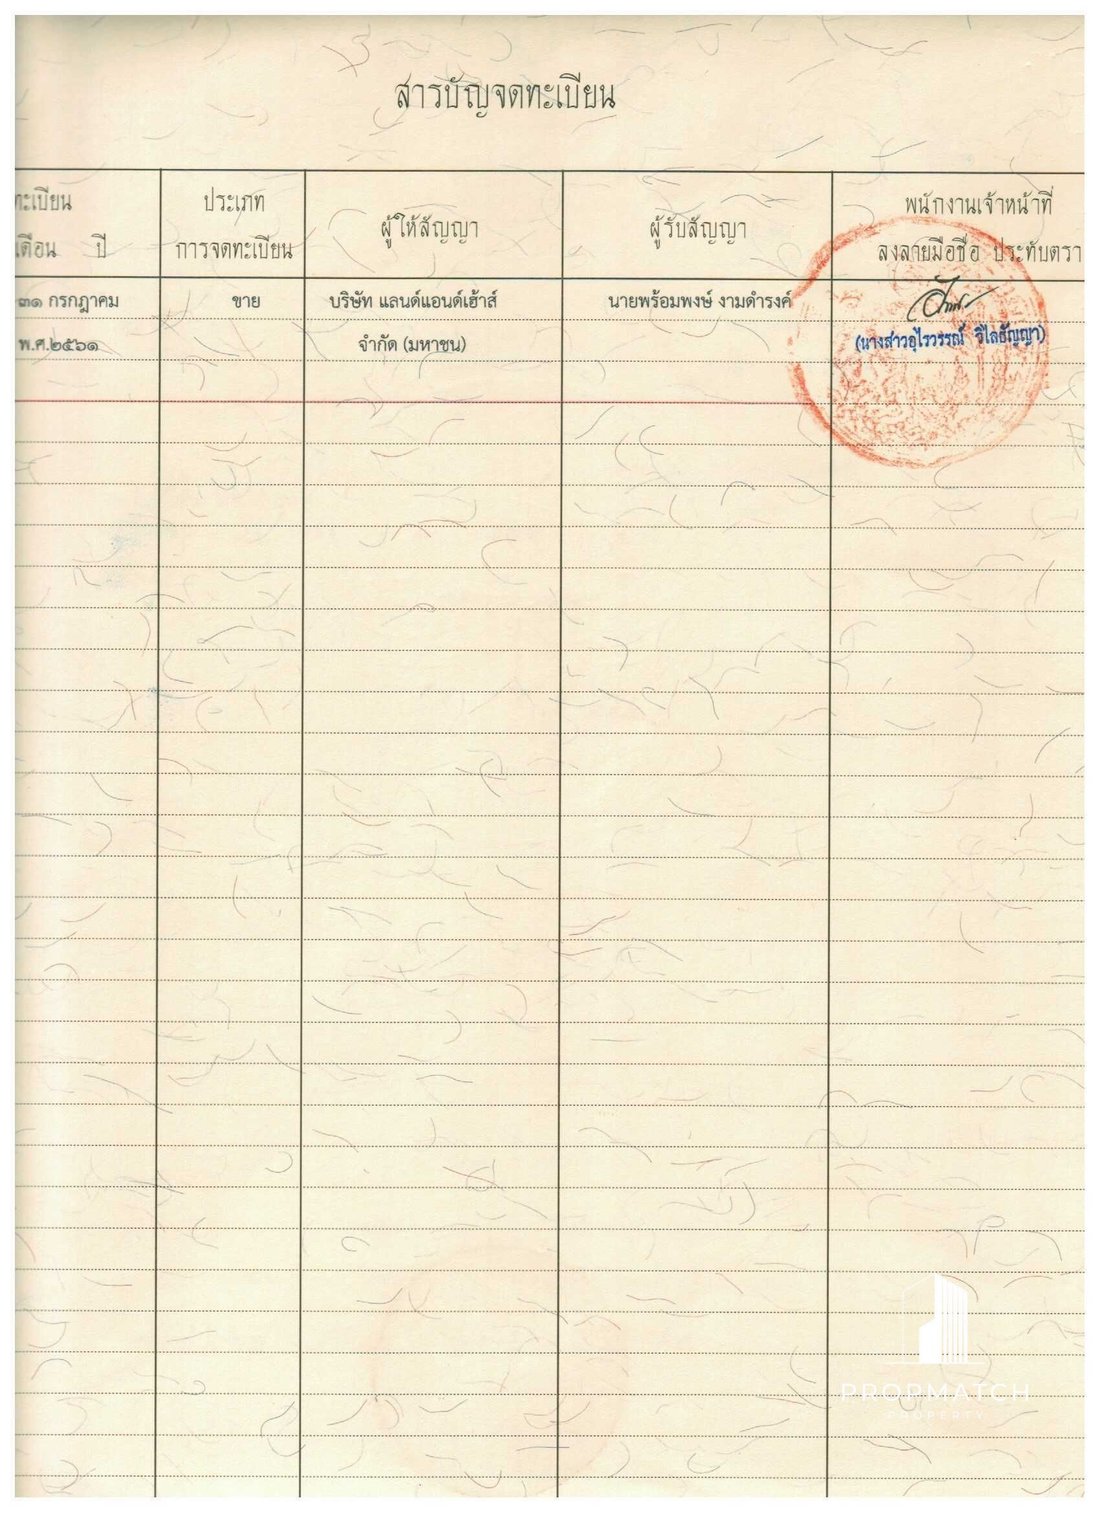 สารบัญจดทะเบียน
ทะเบียน
เดือน ปี
ประเภท
การจดทะเบียน
ผู้ให้สัญญา
ผู้รับสัญญา
พนักงานเจ้าหน้าที่
ลงลายมือชื่อ ประทับตรา
๓๑ กรกฎาคม
พ.ศ.๒๕๖๑
ขาย
บริษัท แลนด์แอนด์เฮ้าส์
จำกัด (มหาชน)
นายพร้อมพงษ์ งามดำรงค์
(นางสาวอุไรวรรณ์ วิไลธัญญา)
PROPMATCH
PROPERTY